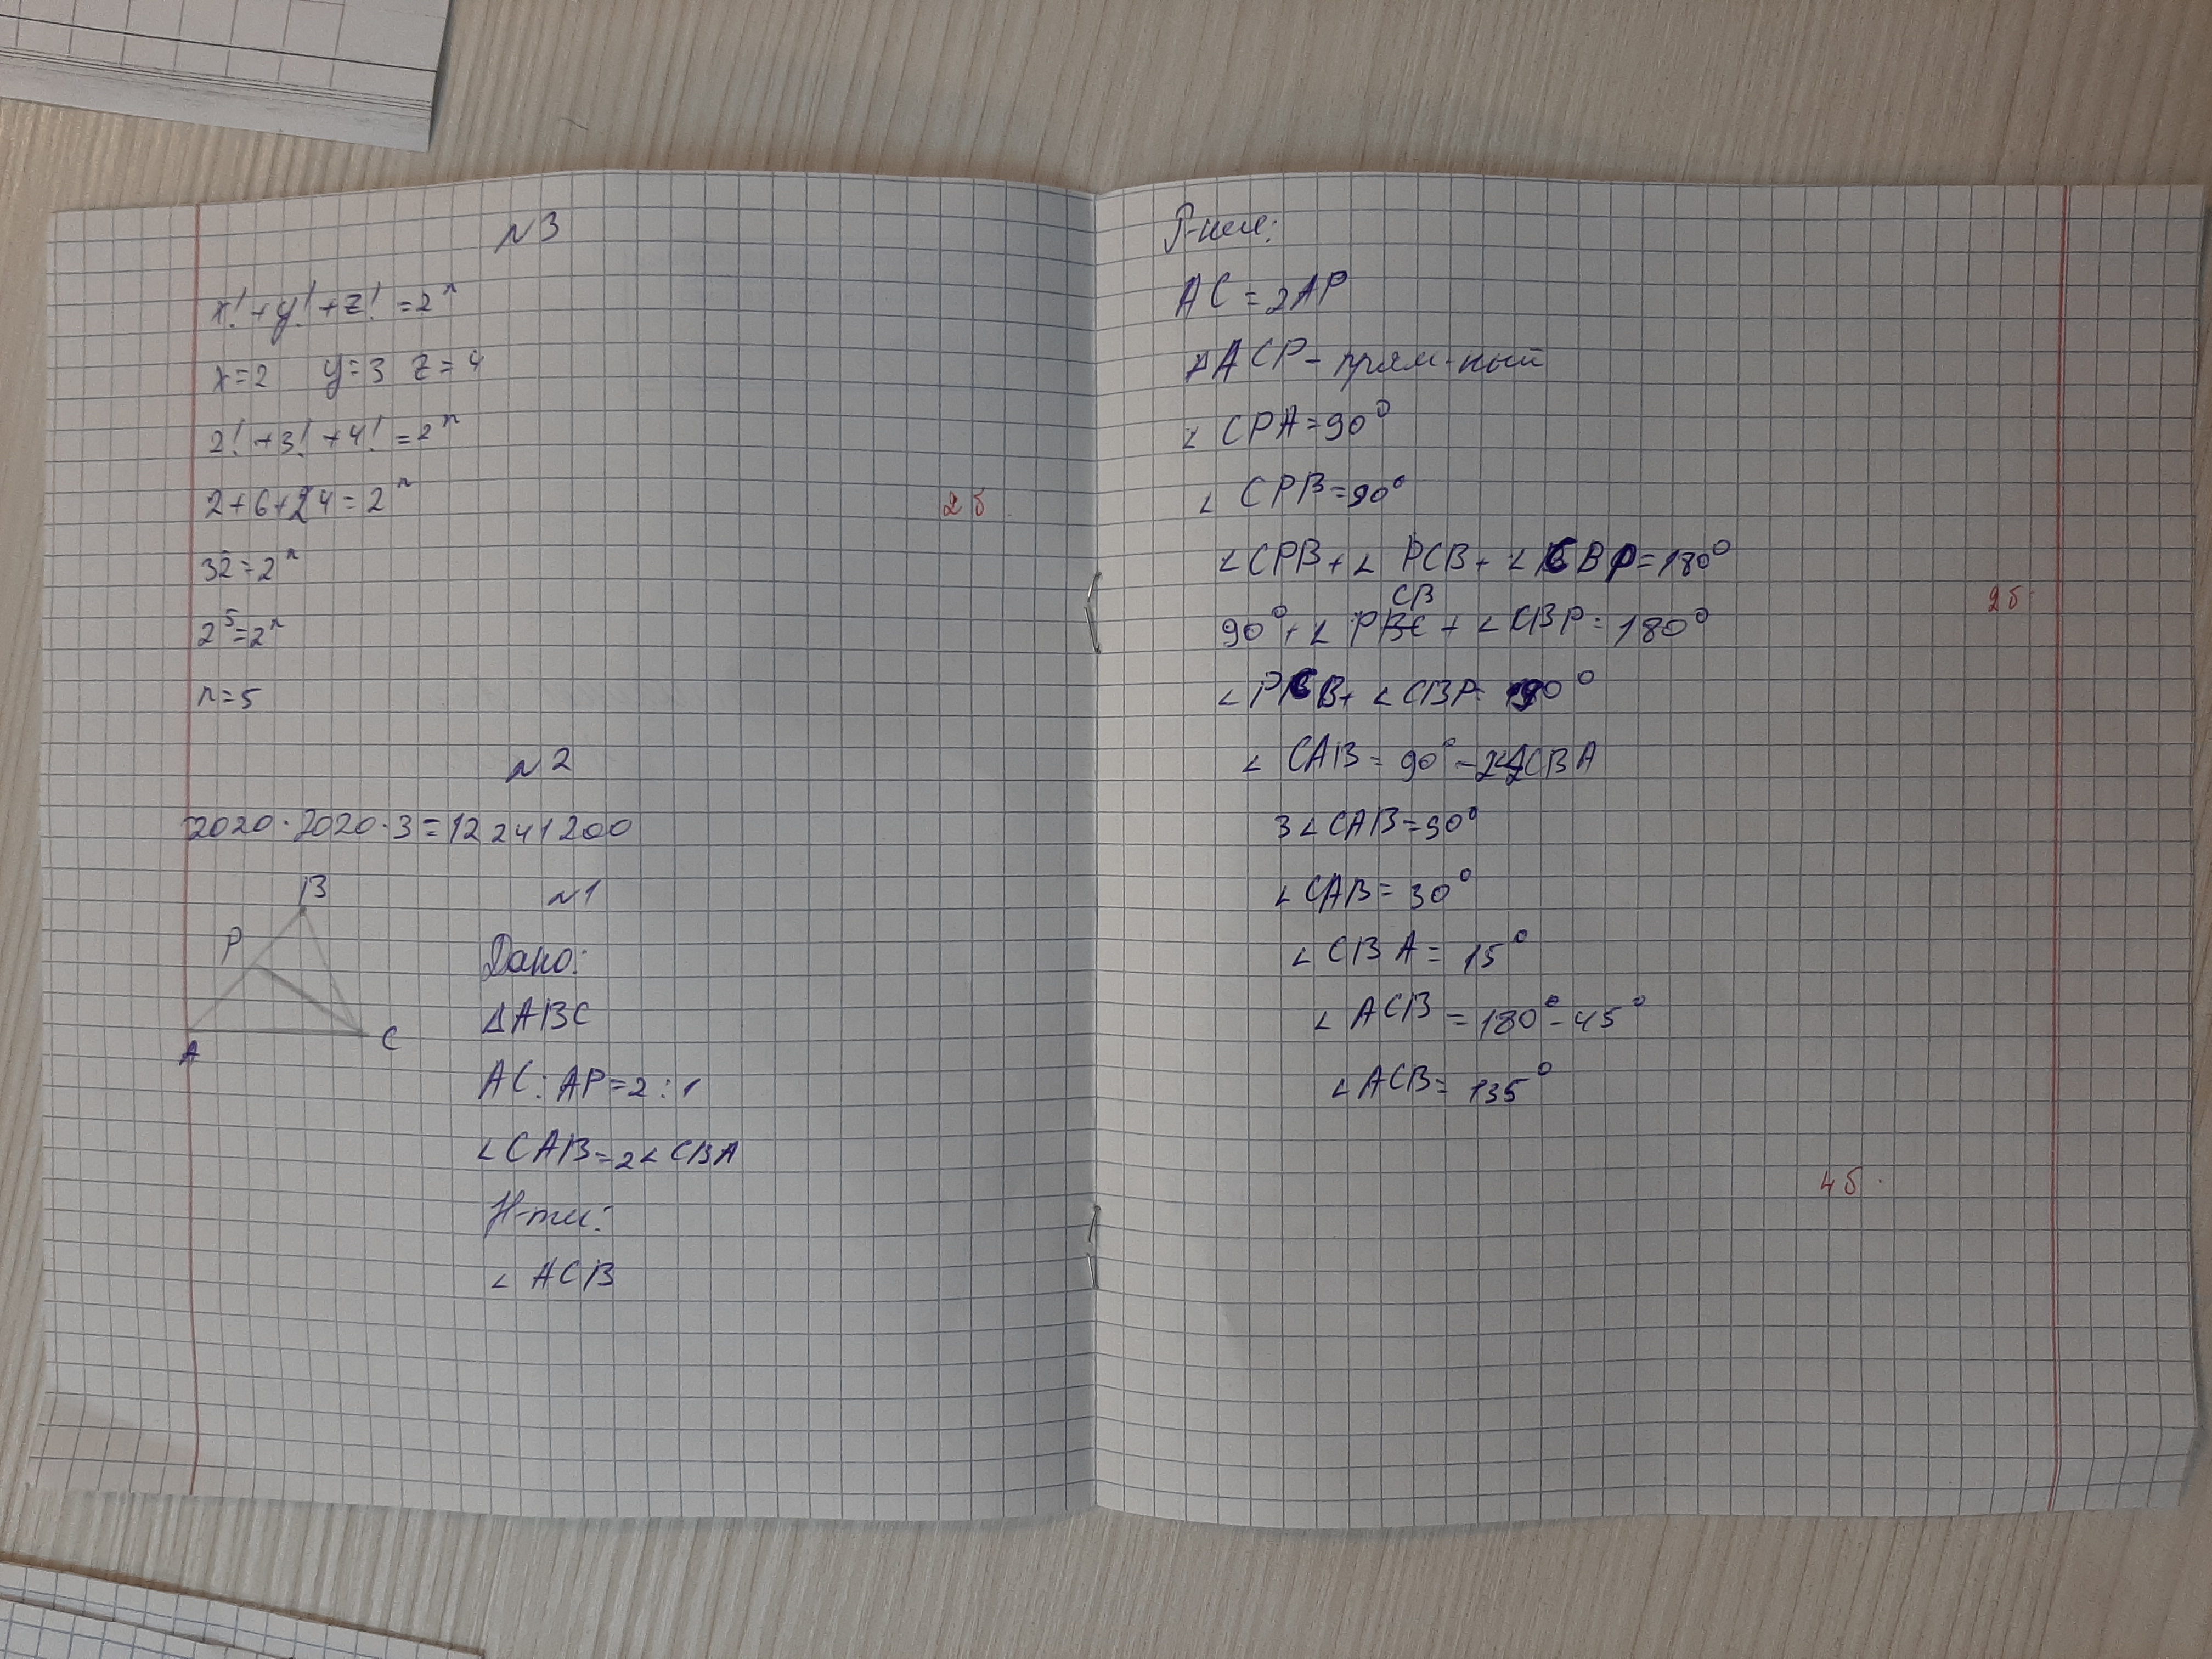 N3
x! + y! + z! = 2ⁿ
x=2 y=3 z=4
2! + 3! + 4! = 2ⁿ
2+6+24=2ⁿ
2б.
32=2ⁿ
2⁵=2ⁿ
n=5
N2
2020·2020·3=12 241 200
N1
B
P
A
C
Дано:
△ABC
AC:AP=2:1
∠CAB=2∠CBA
Н-ти:
∠ACB
Р-ние:
AC=2AP
△ACP-прям-ный
∠CPA=90°
∠CPB=90°
∠CPB+∠PCB+∠CBP=180°
CB
90°+∠PBC+∠CBP=180°
2б.
∠PCB+∠CBP=90°
∠CAB=90°-2∠CBA
3∠CAB=90°
∠CAB=30°
∠CBA=15°
∠ACB=180°-45°
∠ACB=135°
4б.